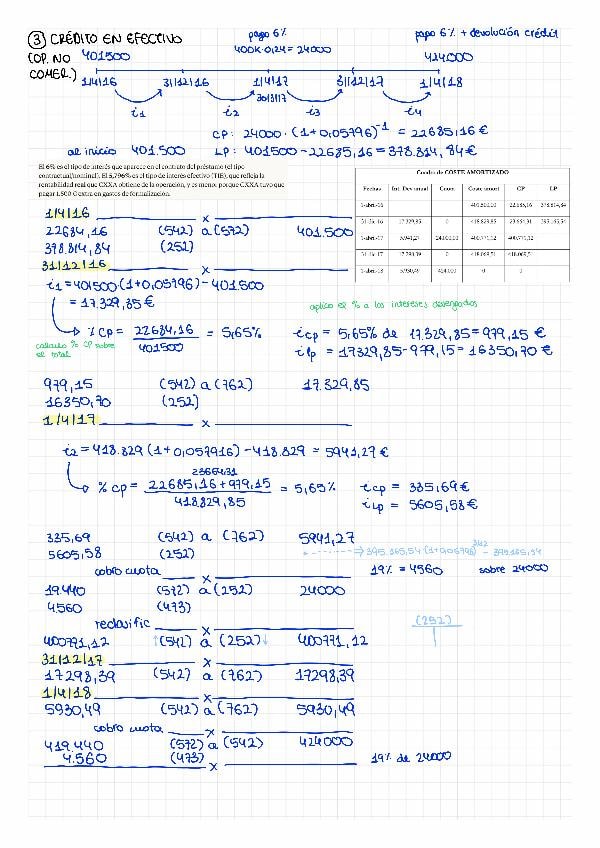 ③ CRÉDITO EN EFECTIVO
(OP. NO
COMER.)
pago 6%
400K·0,24 = 24000
pago 6% + devolución crédit
401500
424000
1/4/16 31/12/16 1/4/17 31/12/17 1/4/18
30/3/17
i1 i2 i3 i4
CP: 24000 · (1+0,05796)^-1 = 22685,16 €
al inicio 401.500 LP: 401500 - 22685,16 = 378.814,84 €
El 6% es el tipo de interés que aparece en el contrato del préstamo (el tipo
contractual/nominal). El 5,796% es el tipo de interés efectivo (TIE), que refleja la
rentabilidad real que CXXA obtiene de la operación, y es menor porque CXXA tuvo que
pagar 1.500 € extra en gastos de formalización.
Cuadro de COSTE AMORTIZADO
Fechas Int. Devengad Cuota Coste amort CP LP
1-abr.-16 401.500,00 22.685,16 378.814,84
31-dic.-16 17.329,85 0 418.829,85 23.664,31 395.165,54
1-abr.-17 5.941,27 24.000,00 400.771,12 400.771,12
31-dic.-17 17.298,39 0 418.069,51 418.069,5
1-abr.-18 5.930,49 424.000 0 0
1/4/16 x
22684,16 (542) a (572) 401.500
378.814,84 (252)
31/12/16 x
i1 = 401500 (1+0,05796) - 401500
= 17.329,85 €
aplico el % a los intereses devengados
% CP = 22684,16 / 401500 = 5,65%
calculo % CP sobre
el total
icp = 5,65% de 17.329,85 = 979,15 €
ilp = 17329,85 - 979,15 = 16350,70 €
979,15 (542) a (762) 17.329,85
16350,70 (252)
1/4/17 x
i2 = 418.829 (1+0,057916) - 418.829 = 5941,27 €
23664,31
% CP = 22685,16 + 979,15 / 418.829,85 = 5,65%
icp = 335,69 €
iLp = 5605,58 €
335,69 (542) a (762) 5941,27
5605,58 (252)
395.165,54 (1+0,05796)^3/12 - 395.165,54
cobro cuota x
19% = 4560 sobre 24000
19.440 (572) a (252) 24000
4.560 (473)
reclasific x
(252)
400771,12 ↑(542) a (252)↓ 400771,12
31/12/17 x
17298,39 (542) a (762) 17298,39
1/4/18 x
5930,49 (542) a (762) 5930,49
cobro cuota x
419.440 (572) a (542) 424000
4.560 (473)
19% de 24000
x